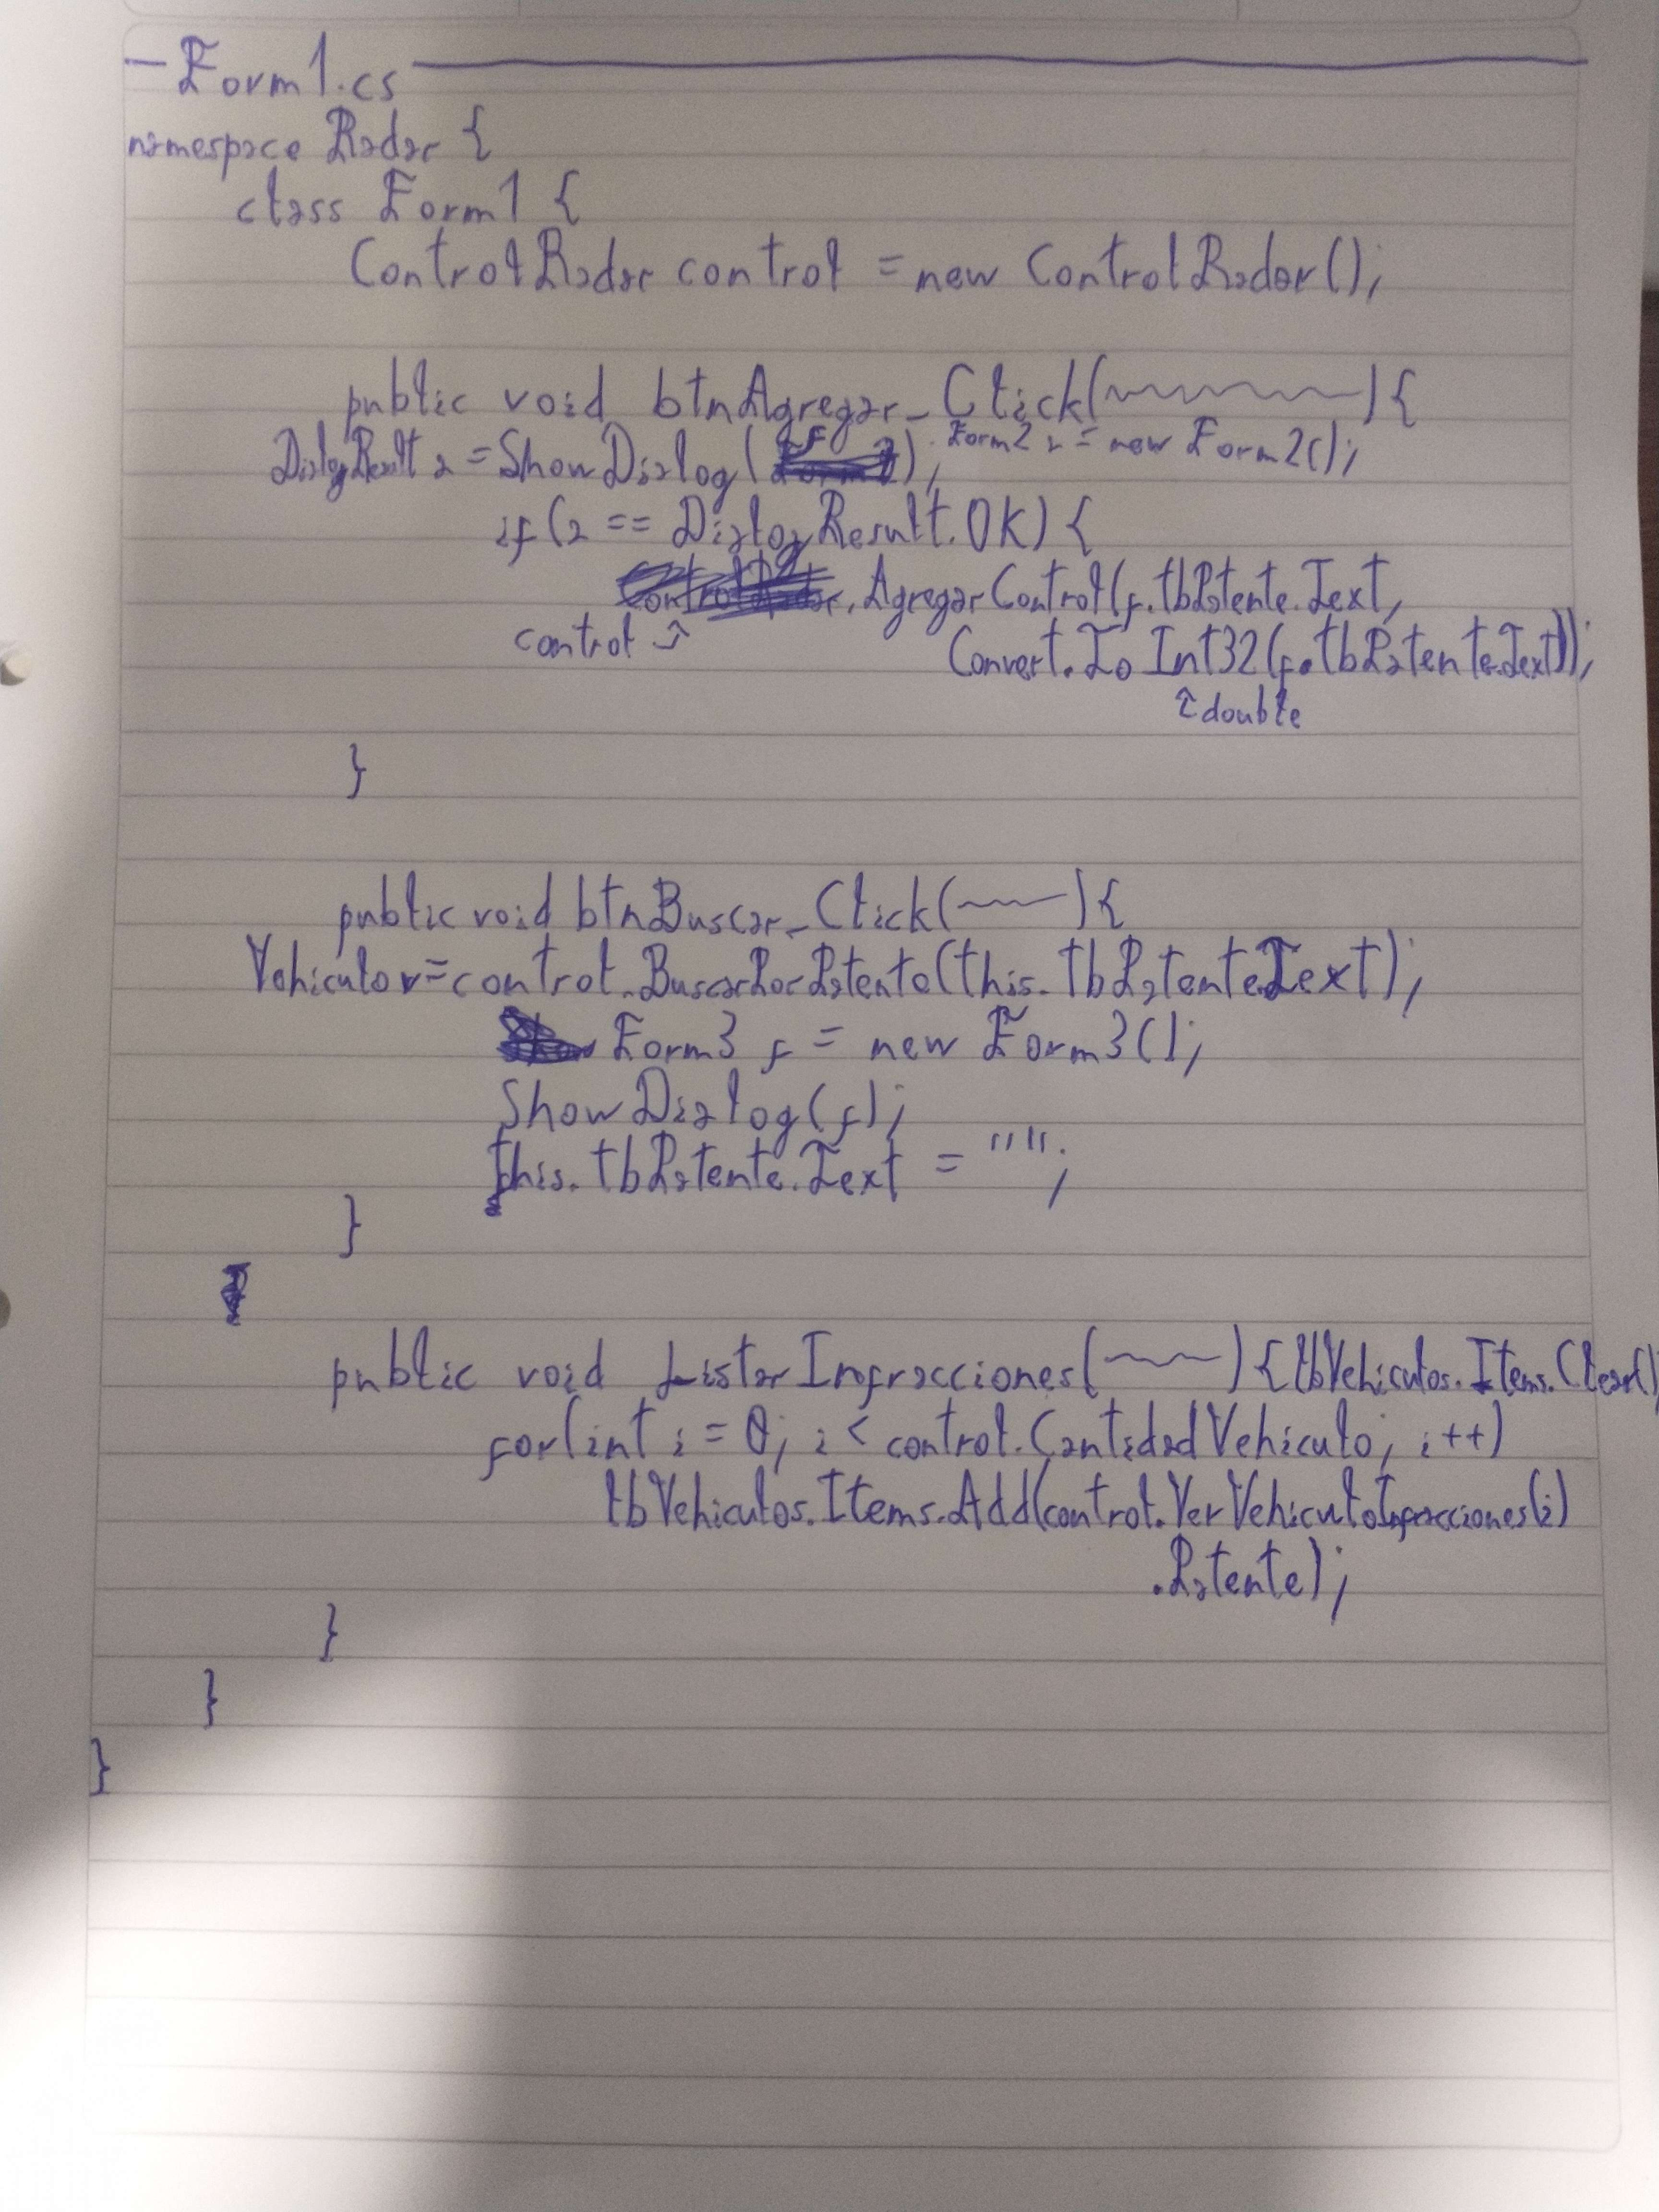 — Form1.cs
namespace Radar {
class Form1 {
ControlRadar control = new ControlRadar();
public void btnAgregar_Click( ) {
Form2 r = new Form2();
DialogResult a = ShowDialog( f );
if (a == DialogResult.OK) {
.AgregarControl(f.tbPatente.Text,
control ↗
Convert.To Int32(f.tbPatente.Text));
↑ double
}
public void btnBuscar_Click( ) {
Vehiculo v = control.BuscarPorPatente(this.tbPatente.Text);
Form3 f = new Form3();
ShowDialog(f);
this.tbPatente.Text = "";
}
public void ListarInfracciones( ) { lbVehiculos.Items.Clear()
for(int i = 0; i < control.CantidadVehiculo; i++)
lbVehiculos.Items.Add(control.VerVehiculoInfracciones(i)
.Patente);
}
}
}